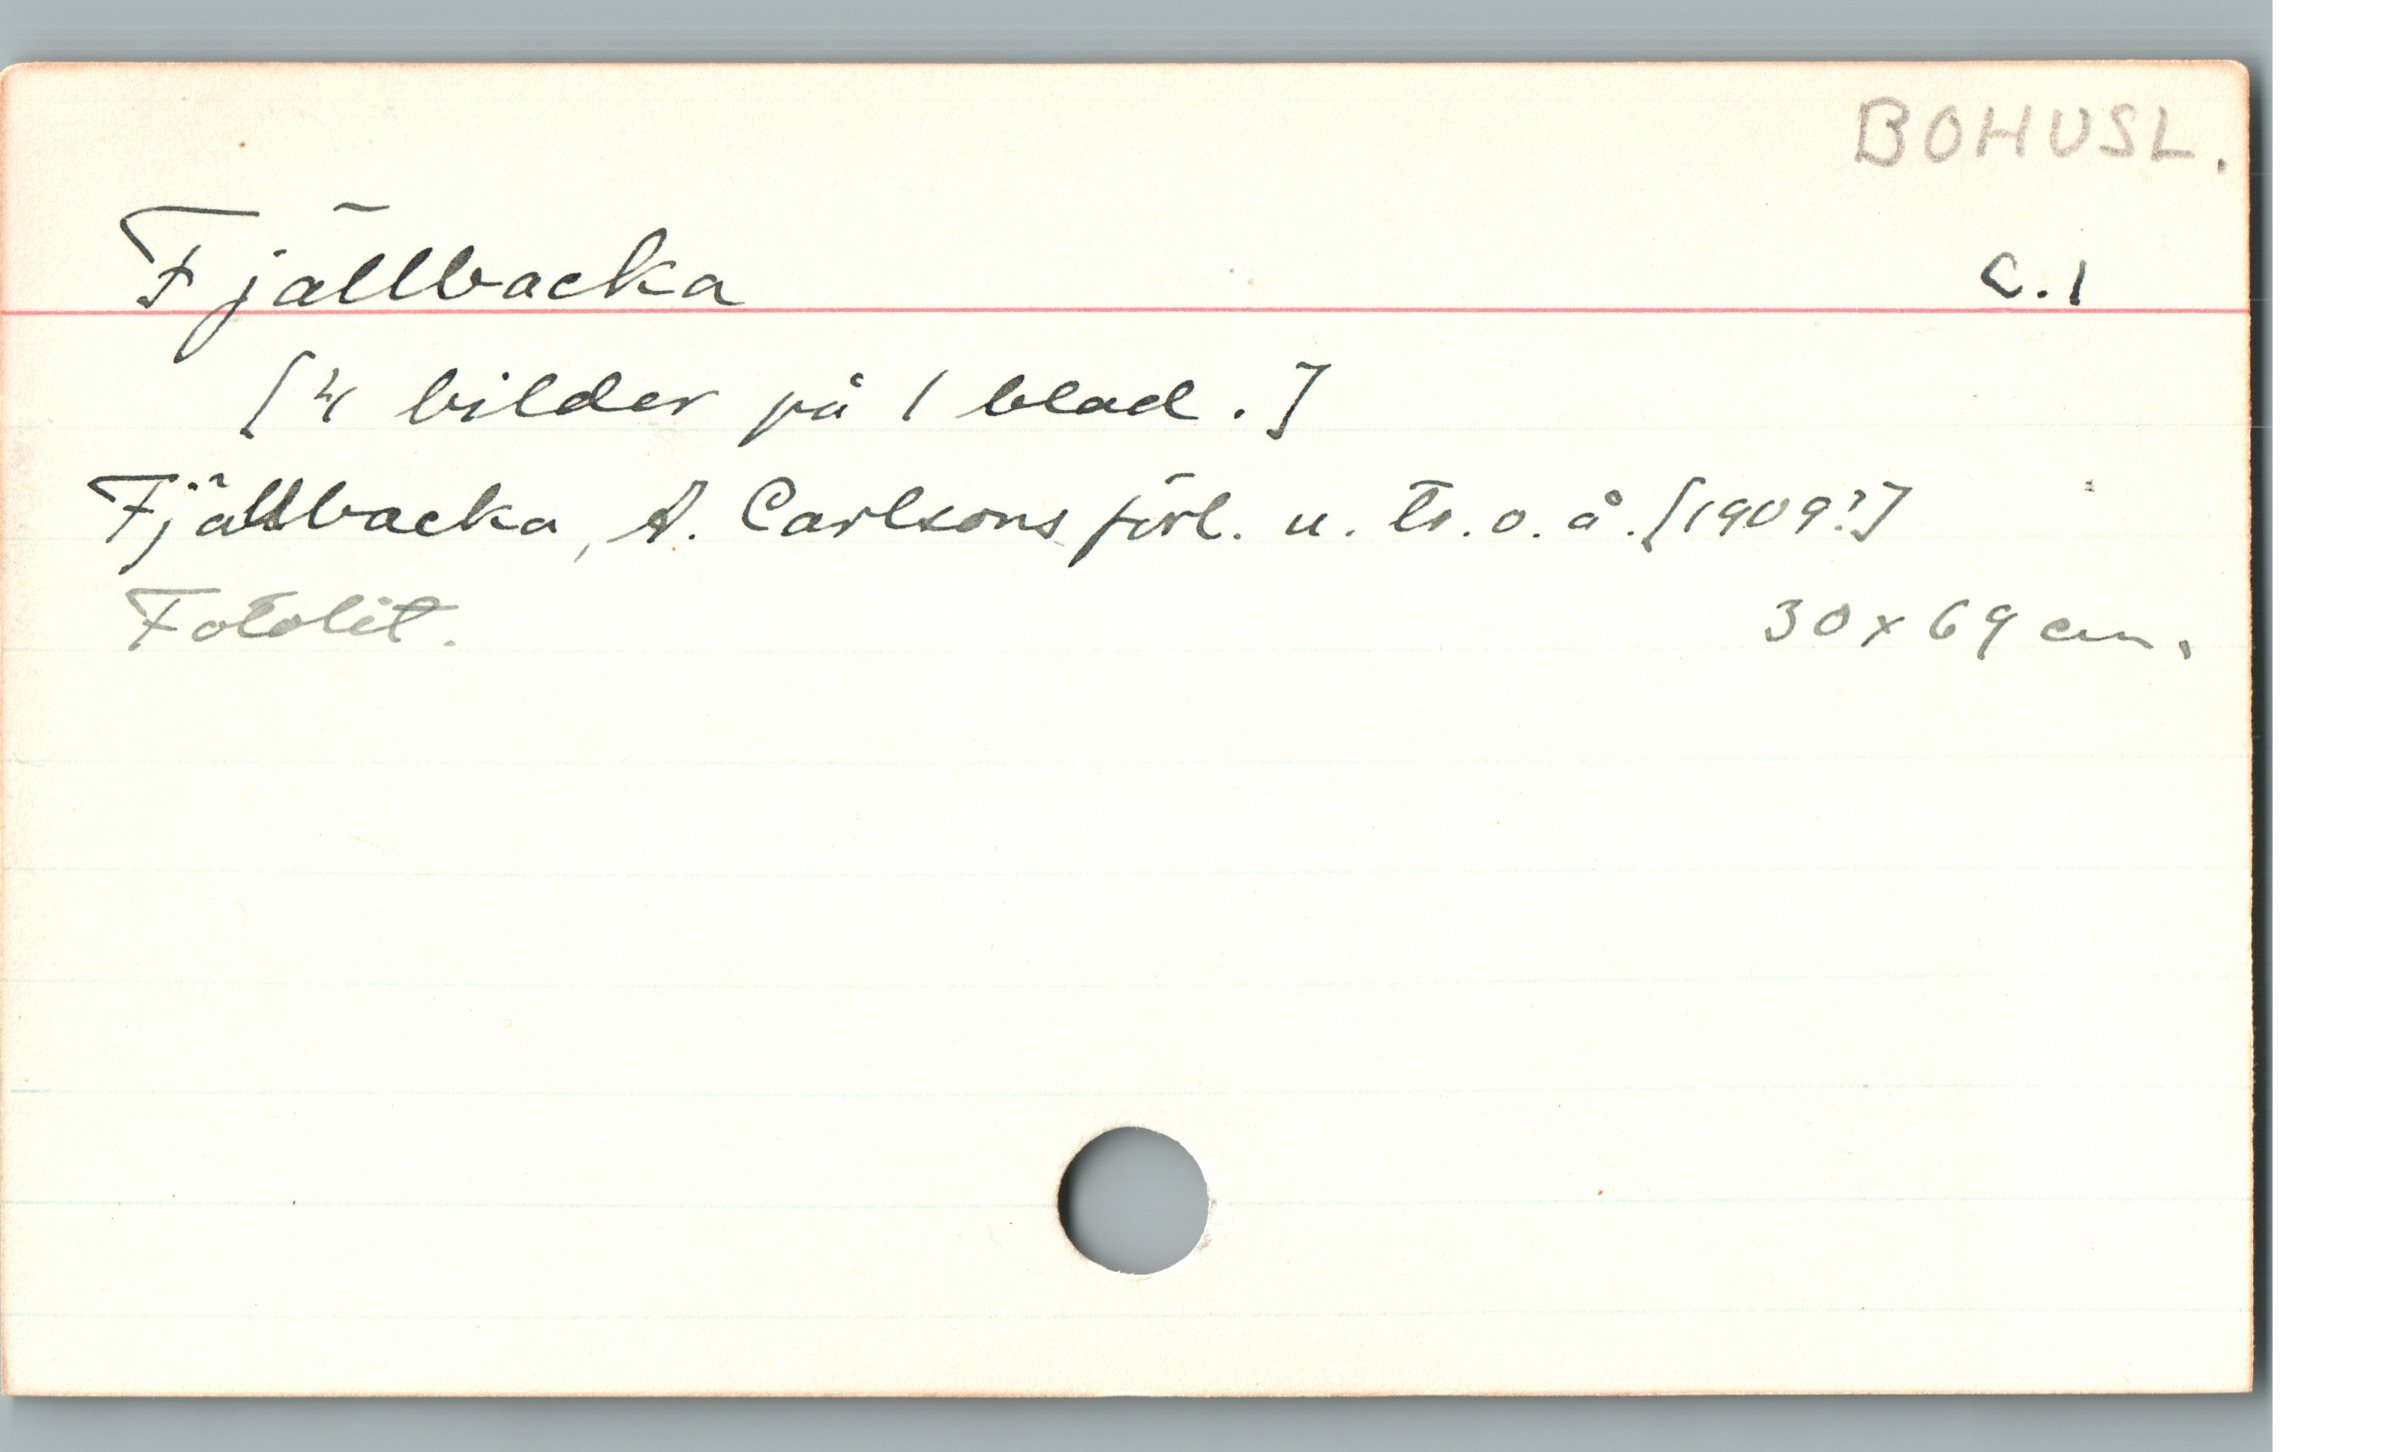 BOHUSL.
Fjällbacka C.1
[4 bilder på 1 blad.]
Fjällbacka, A. Carlsons förl. u. tr. o. å. [1909?]
Fotolit. 30x69 cm.